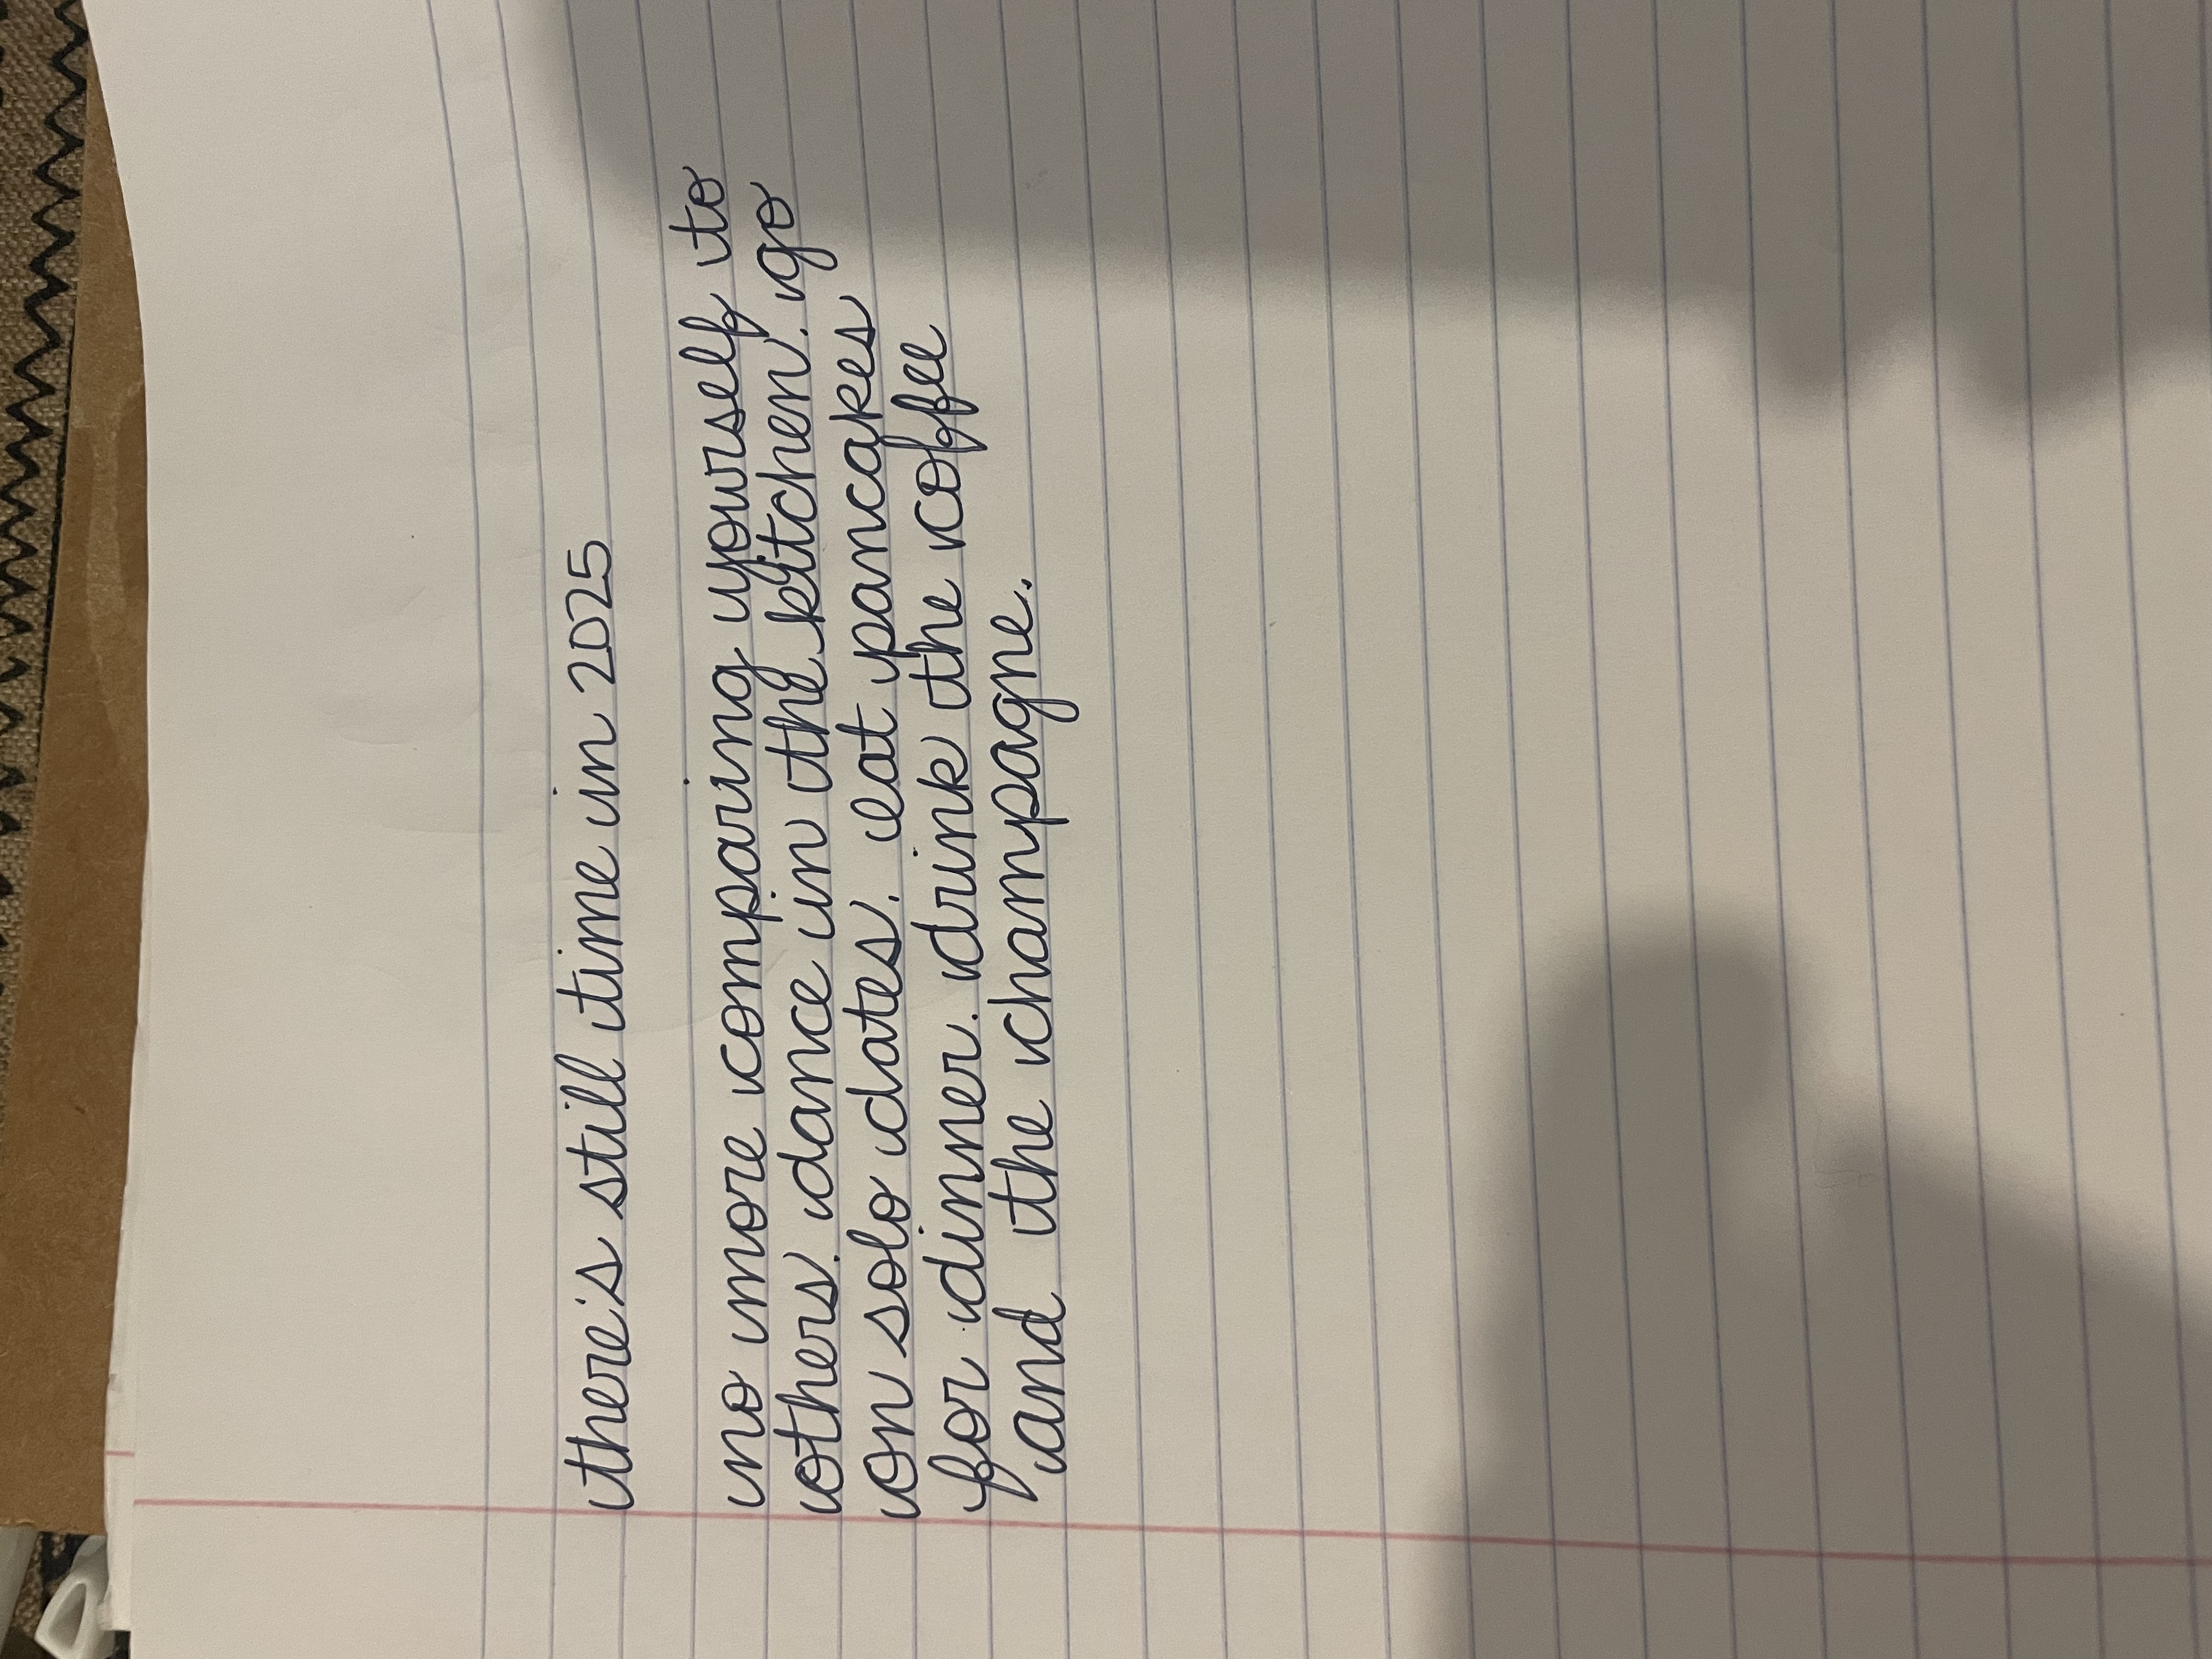 there's still time in 2025
no more comparing yourself to
others. dance in the kitchen. go
on solo dates. eat pancakes
for dinner. drink the coffee
and the champagne.